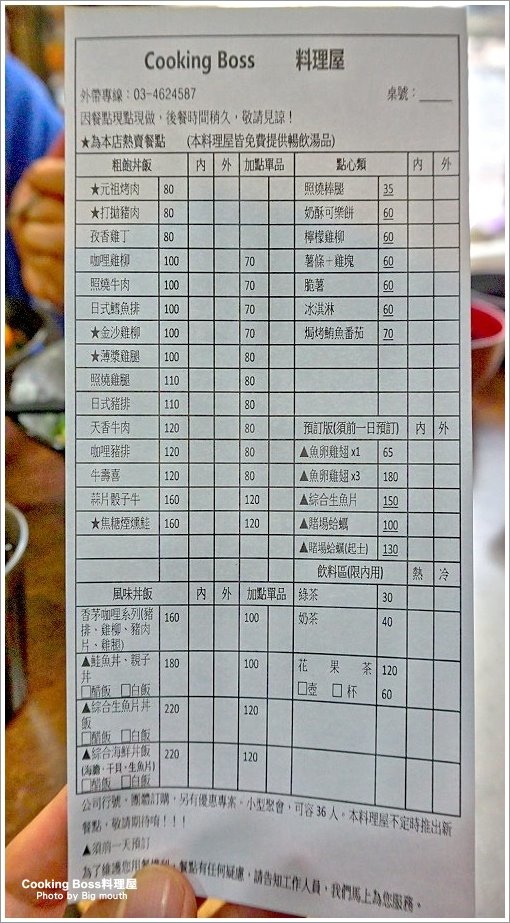 Cooking Boss 料理屋
外帶專線：03-4624587 桌號：_____
因餐點現點現做，後餐時間稍久，敬請見諒！
★為本店熱賣餐點 (本料理屋皆免費提供暢飲湯品)
粗飽丼飯 內 外 加點單品 點心類 內 外
★元祖烤肉 80 照燒棒腿 35
★打拋豬肉 80 奶酥可樂餅 60
孜香雞丁 80 檸檬雞柳 60
咖哩雞柳 100 70 薯條＋雞塊 60
照燒牛肉 100 70 脆薯 60
日式鱈魚排 100 70 冰淇淋 60
★金沙雞柳 100 70 焗烤鮪魚番茄 70
★薄漿雞腿 100 80
照燒雞腿 110 80
日式豬排 110 80
天香牛肉 120 80 預訂版(須前一日預訂) 內 外
咖哩豬排 120 80 ▲魚卵雞翅 x1 65
牛壽喜 120 80 ▲魚卵雞翅 x3 180
蒜片骰子牛 160 120 ▲綜合生魚片 150
★焦糖煙燻鮭 160 120 ▲賭場蛤蠣 100
▲賭場蛤蠣(起士) 130
飲料區(限內用) 熱 冷
風味丼飯 內 外 加點單品 綠茶 30
香茅咖哩系列(豬排、雞柳、豬肉片、雞腿) 160 100 奶茶 40
▲鮭魚丼、親子丼 180 100 花果茶 120
□醋飯 □白飯 □壺 □杯 60
▲綜合生魚片丼飯 220 120
□醋飯 □白飯
▲綜合海鮮丼飯 220 120
(海膽、干貝、生魚片)
□醋飯 □白飯
公司行號、團體訂購，另有優惠專案。小型聚會，可容 36 人。本料理屋不定時推出新
餐點，敬請期待唷！！！
▲須前一天預訂
為了維護您用餐權利，餐點有任何疑慮，請告知工作人員，我們馬上為您服務。
Cooking Boss料理屋
Photo by Big mouth